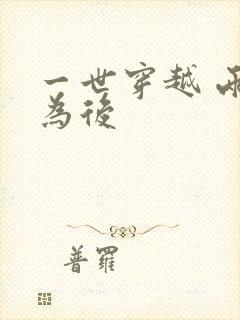 一世穿越 兩
為後
普羅